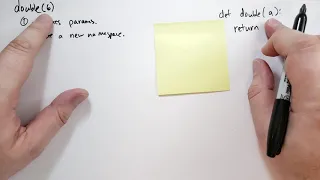 double(6)
① params.
a new namespace.
def double(a):
return